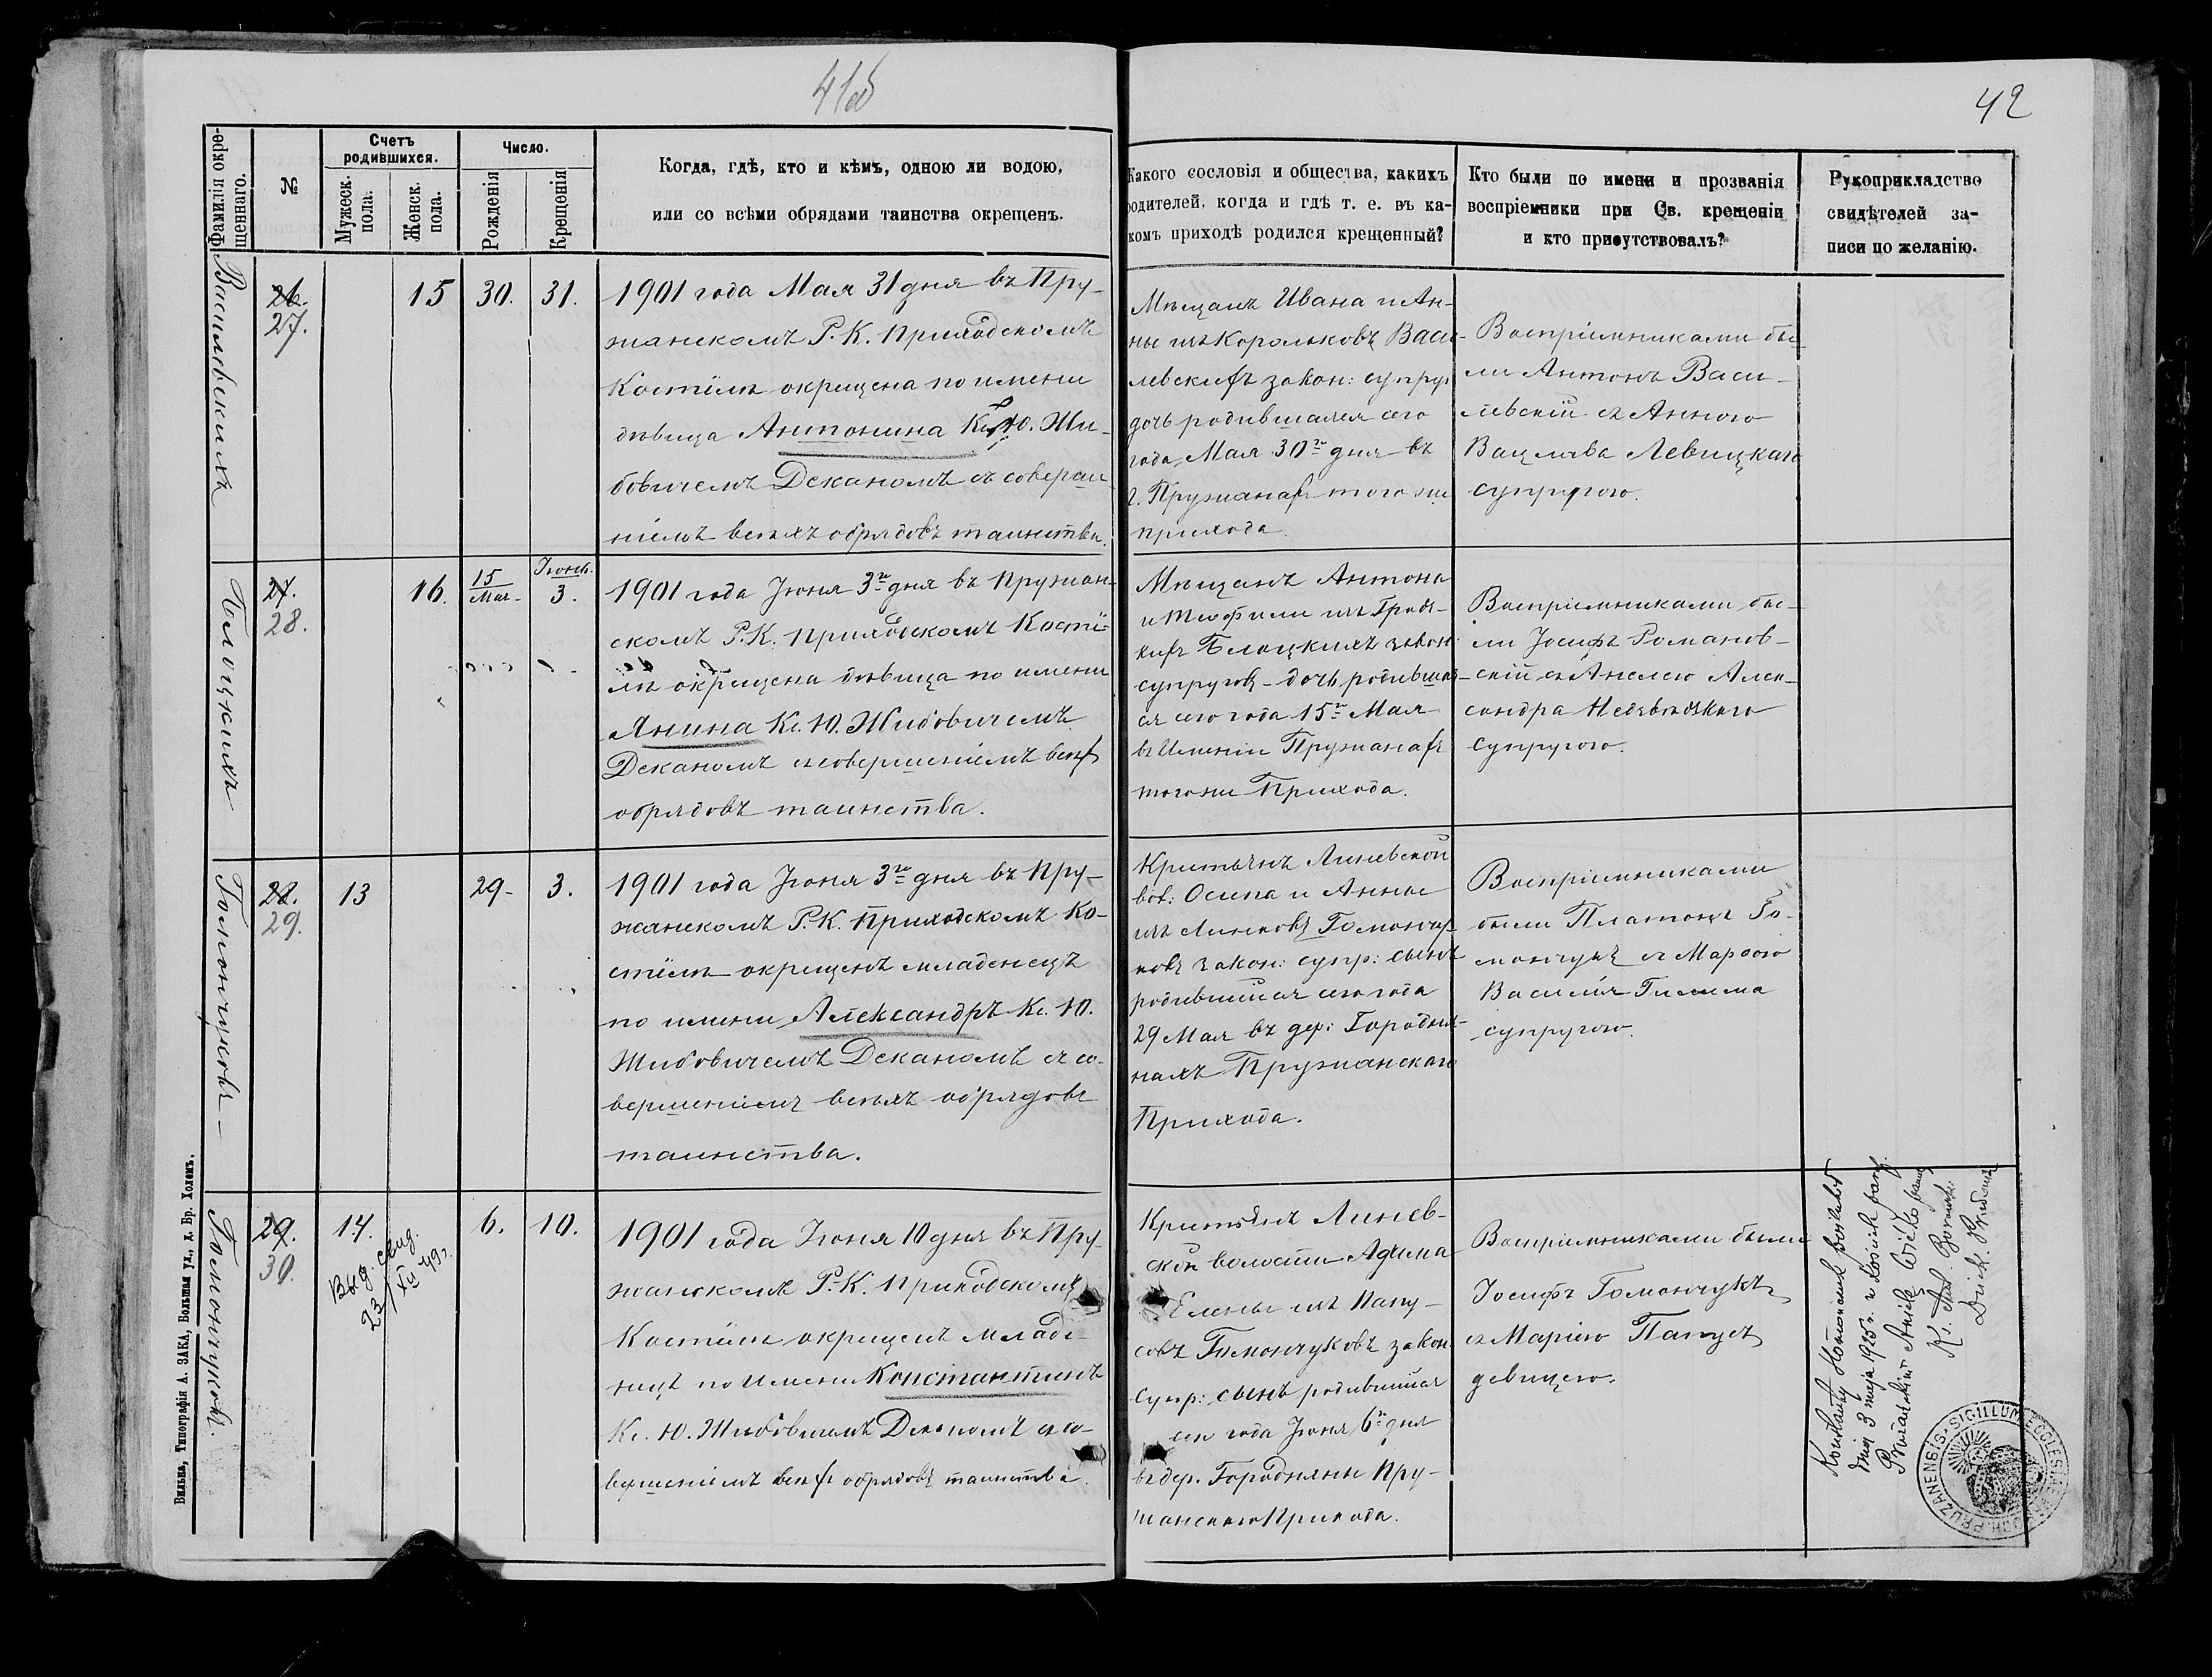 41об
42
Фамилія окре-
щеннаго.
№
Счетъ
родившихся.
Мужеск.
пола.
Женск.
пола.
Число.
Рожденія
Крещенія
Когда, гдѣ, кто и кѣмъ, одною ли водою,
или со всѣми обрядами таинства окрещенъ.
Какого сословія и общества, какихъ
родителей, когда и гдѣ т. е. въ ка-
комъ приходѣ родился крещенный?
Кто были по имени и прозванія
воспріемники при Св. крещеніи
и кто присутствовалъ?
Рукоприкладство
свидѣтелей за-
писи по желанію.
Василевскихъ
26.
27.
15
30.
31.
1901 года Мая 31 дня въ Пру-
жанскомъ Р. К. Приходскомъ
Костёлѣ окрещена по имени
дѣвица Антонина Кс. Ю. Жи-
бовичемъ Деканомъ съ соверше-
ніемъ всѣхъ обрядовъ таинства.
Мѣщанъ Ивана и Ан-
ны изъ Корольковъ Васи-
левскихъ закон: супруг
дочь родившаяся сего
года Мая 30го дня въ
г. Пружанахъ того же
прихода.
Воспріемниками бы-
ли Антонъ Васи-
левскій съ Анною
Вацлава Левицкаго
супругою.
Белоцкихъ
27.
28.
16.
15
Мая
Іюнь.
3.
1901 года Іюня 3го дня въ Пружан-
скомъ Р. К. Приходскомъ Костё-
лѣ окрещена дѣвица по имени
Янина Кс. Ю. Жибовичемъ
Деканомъ съ совершеніемъ всѣхъ
обрядовъ таинства.
Мѣщанъ Антона
и Теофили изъ Гродз-
кихъ Белоцкихъ закон:
супруговъ дочь родивша-
яся сего года 15го Мая
въ Имѣніи Пружанахъ
того же Прихода.
Воспріемниками бы-
ли Іосифъ Романов-
скій съ Анелею Алек-
сандра Недзвѣдзкаго
супругою.
Гомончуковъ
28.
29.
13
29
3.
1901 года Іюня 3го дня въ Пру-
жанскомъ Р. К. Приходскомъ Ко-
стёлѣ окрещенъ младенецъ
по имени Александръ Кс. Ю.
Жибовичемъ Деканомъ съ со-
вершеніемъ всѣхъ обрядовъ
таинства.
Крестьянъ Линевской
вол: Осипа и Анны
изъ Гомончу-
ковъ закон: супр: сынъ
родившійся сего года
29 Мая въ дер: Городня-
нахъ Пружанскаго
Прихода.
Воспріемниками
были Платонъ Го-
мончукъ съ Марѳою
Василія
супругою.
Гомончуковъ.
29.
30.
14.
Выд. свид.
23/XII 49 г.
6.
10.
1901 года Іюня 10 дня въ Пру-
жанскомъ Р. К. Приходскомъ
Костёлѣ окрещенъ младе-
нецъ по имени Константинъ
Кс. Ю. Жибовичемъ Деканомъ съ со-
вершеніемъ всѣхъ обрядовъ таинства.
Крестьянъ Линев-
ской волости Адама
Елены изъ Папу-
совъ Гомончуковъ закон
супр: сынъ родившійся
сего года Іюня 6го дня
въ дер. Городняны Пру-
жанскаго Прихода.
Воспріемниками были
Іосифъ Гомончукъ
съ Маріею Папусъ
дѣвицею.
dnia 3 maja 1925 r. w kościele
Dziek. Prużański
SIGILLUM ECCLESIAE PAROCH. PRUZANENSIS
Вильна, Типографія А. ЗАКА, Большая ул., д. Бр. Холемъ.